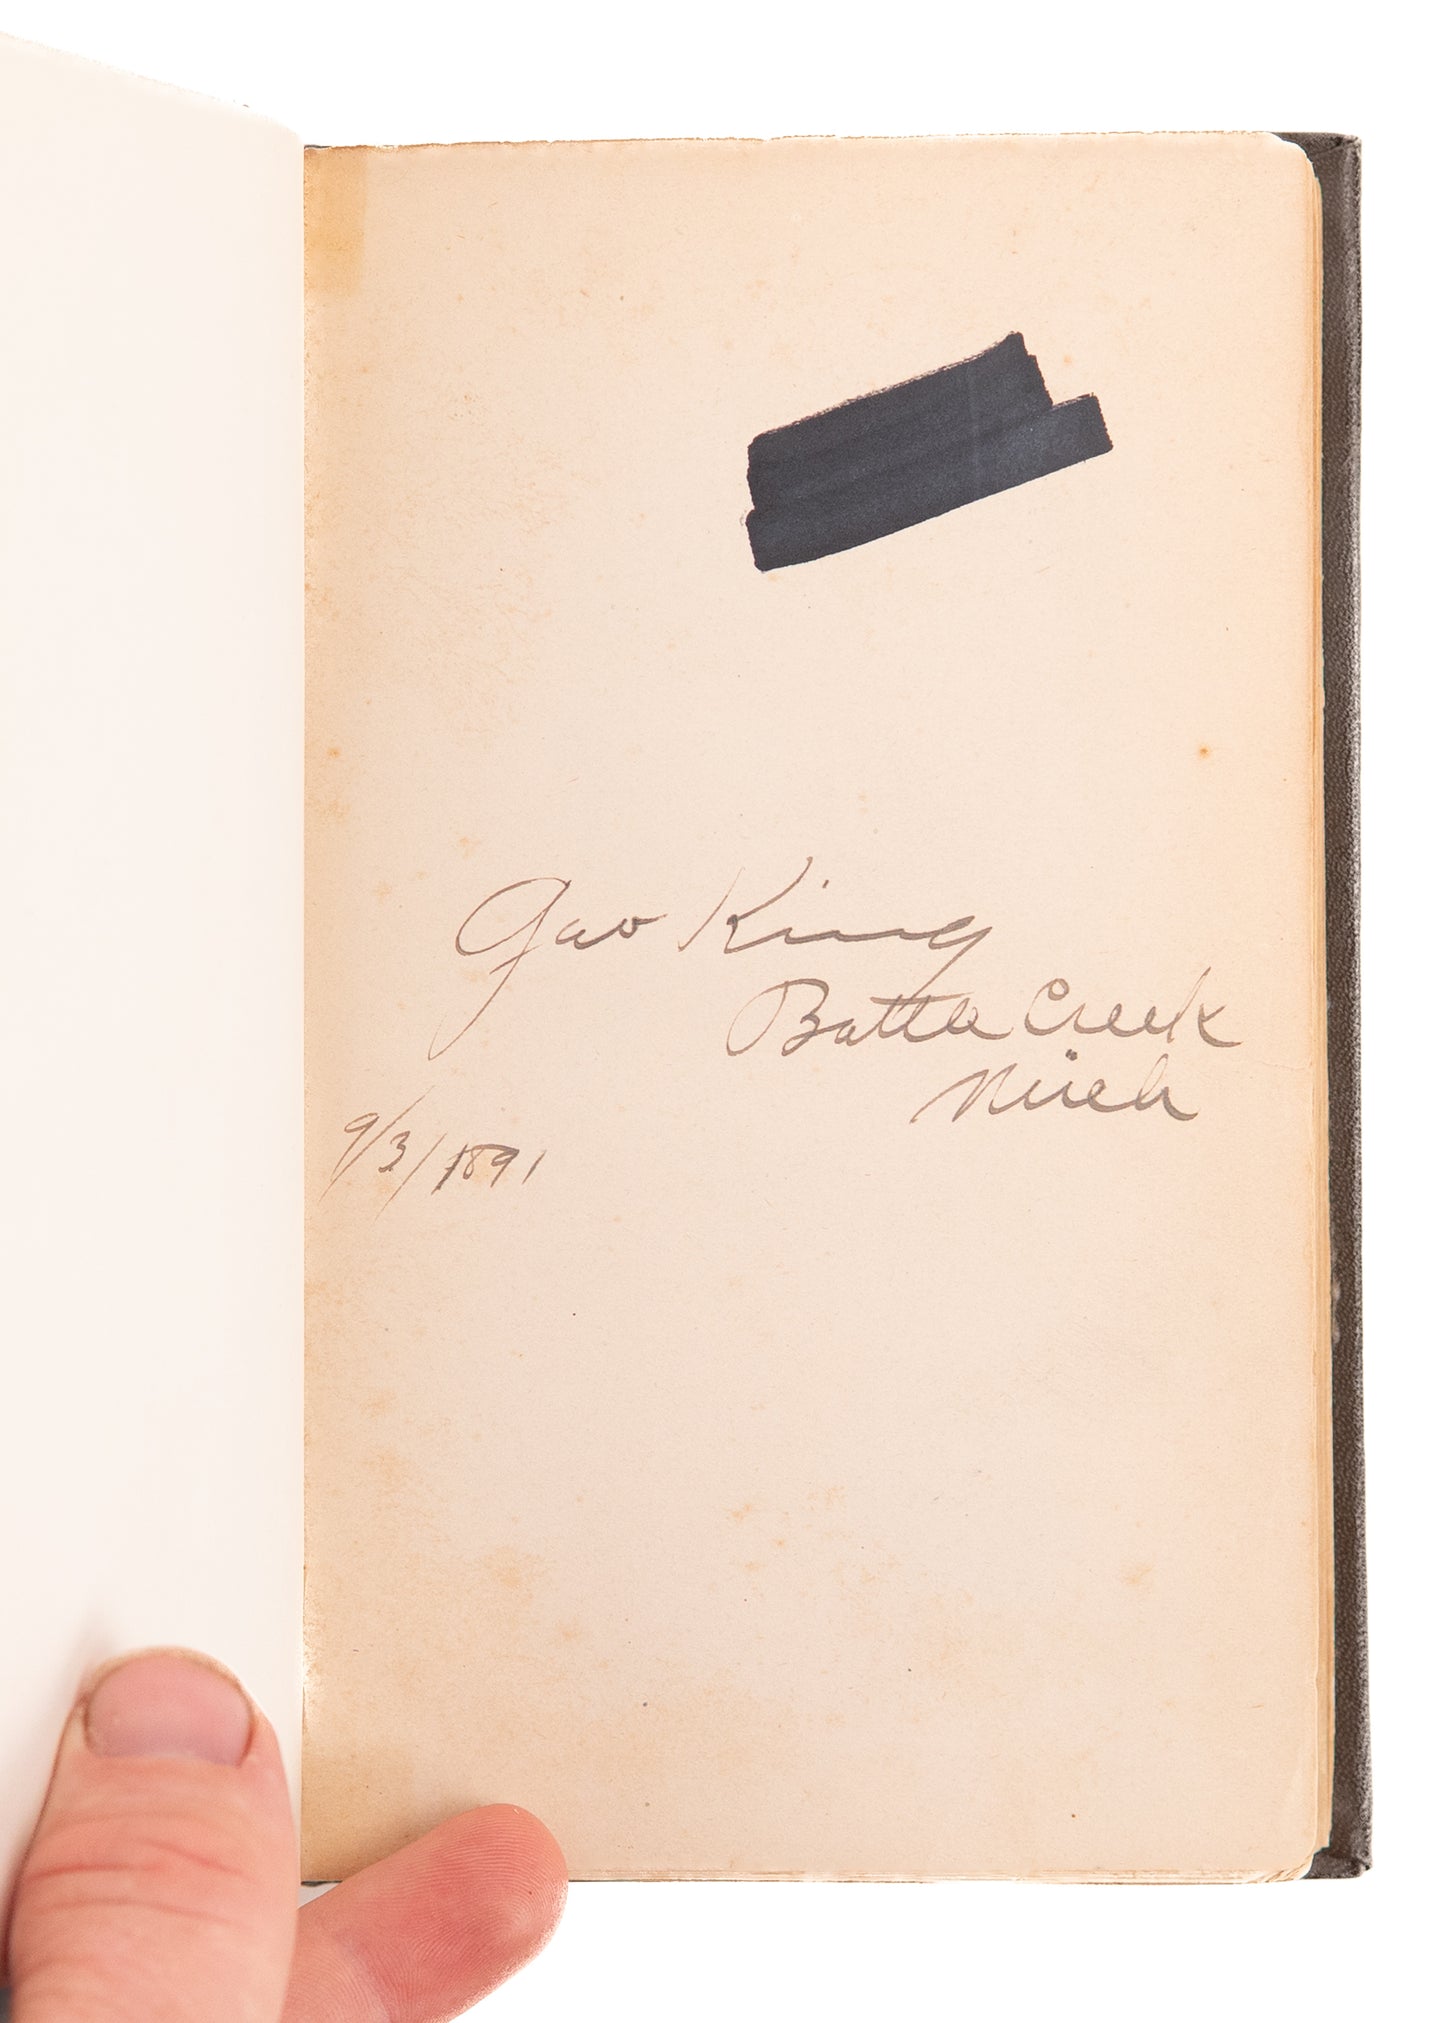 Geo King
Battle Creek
Mich
9/3/1891